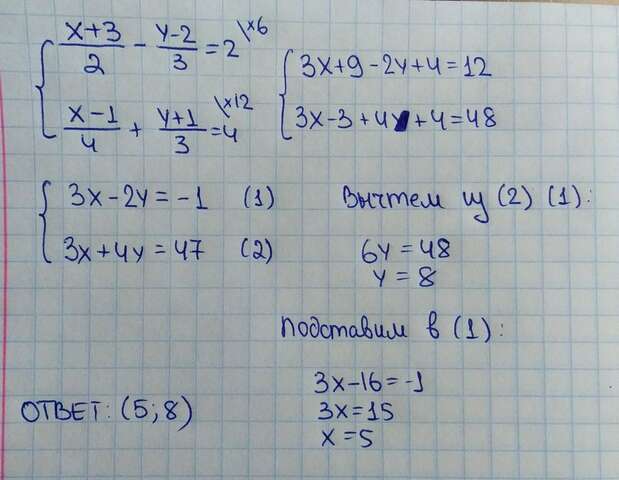 (x+3)/2 - (y-2)/3 = 2 \x6
(x-1)/4 + (y+1)/3 = 4 \x12
3x+9-2y+4=12
3x-3+4y+4=48
3x-2y=-1 (1)
3x+4y=47 (2)
Вычтем из (2) (1):
6y=48
y=8
Подставим в (1):
3x-16=-1
3x=15
x=5
ОТВЕТ: (5;8)